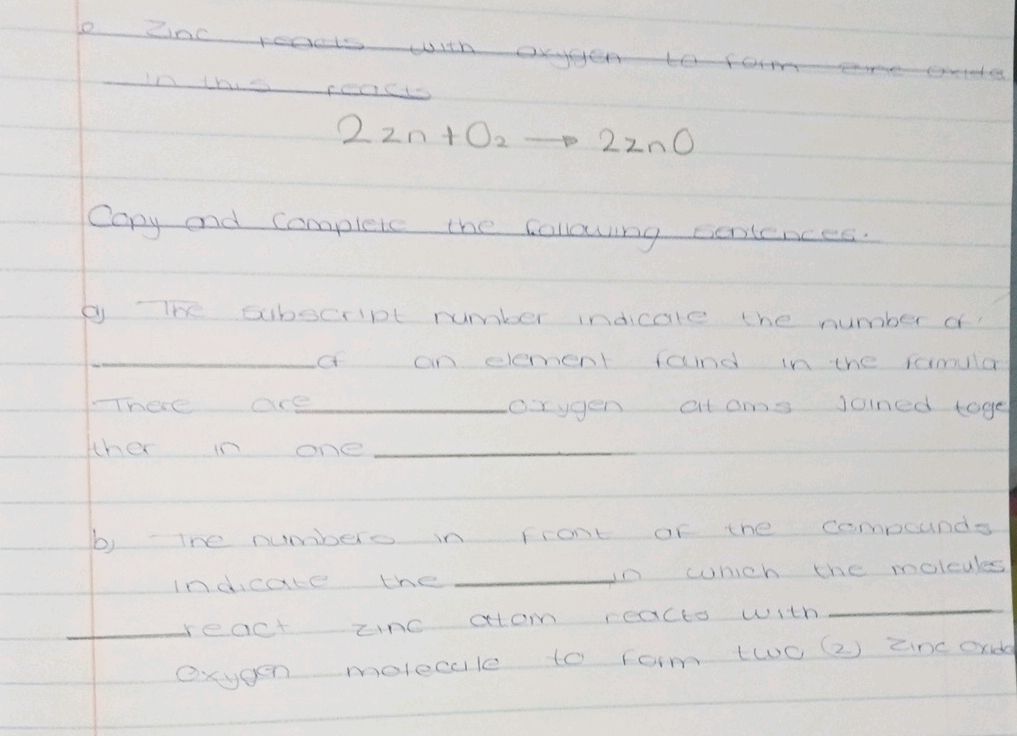 o Zinc reacts with oxygen to form zinc oxide
in this reacts
2zn + O₂ → 2znO
Copy and Complete the following sentences.
a) The subscript number indicate the number of
____________ of an element found in the formula
There are ____________ oxygen attoms Joined toge
ther in one ____________
b) The numbers in front of the compounds
indicate the ____________ in which the molcules
____________ react zinc attom reacts with ____________
oxygen molecule to form two (2) zinc oxide